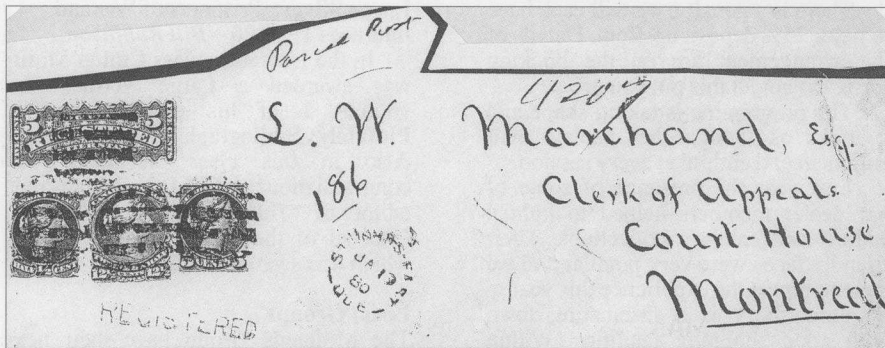 Parcel Post
5 5
REGISTERED
L. W. Marchand, Esq.
186
Clerk of Appeals
Court-House
Montreal
EAST
JA 19
80
QUE
REGISTERED